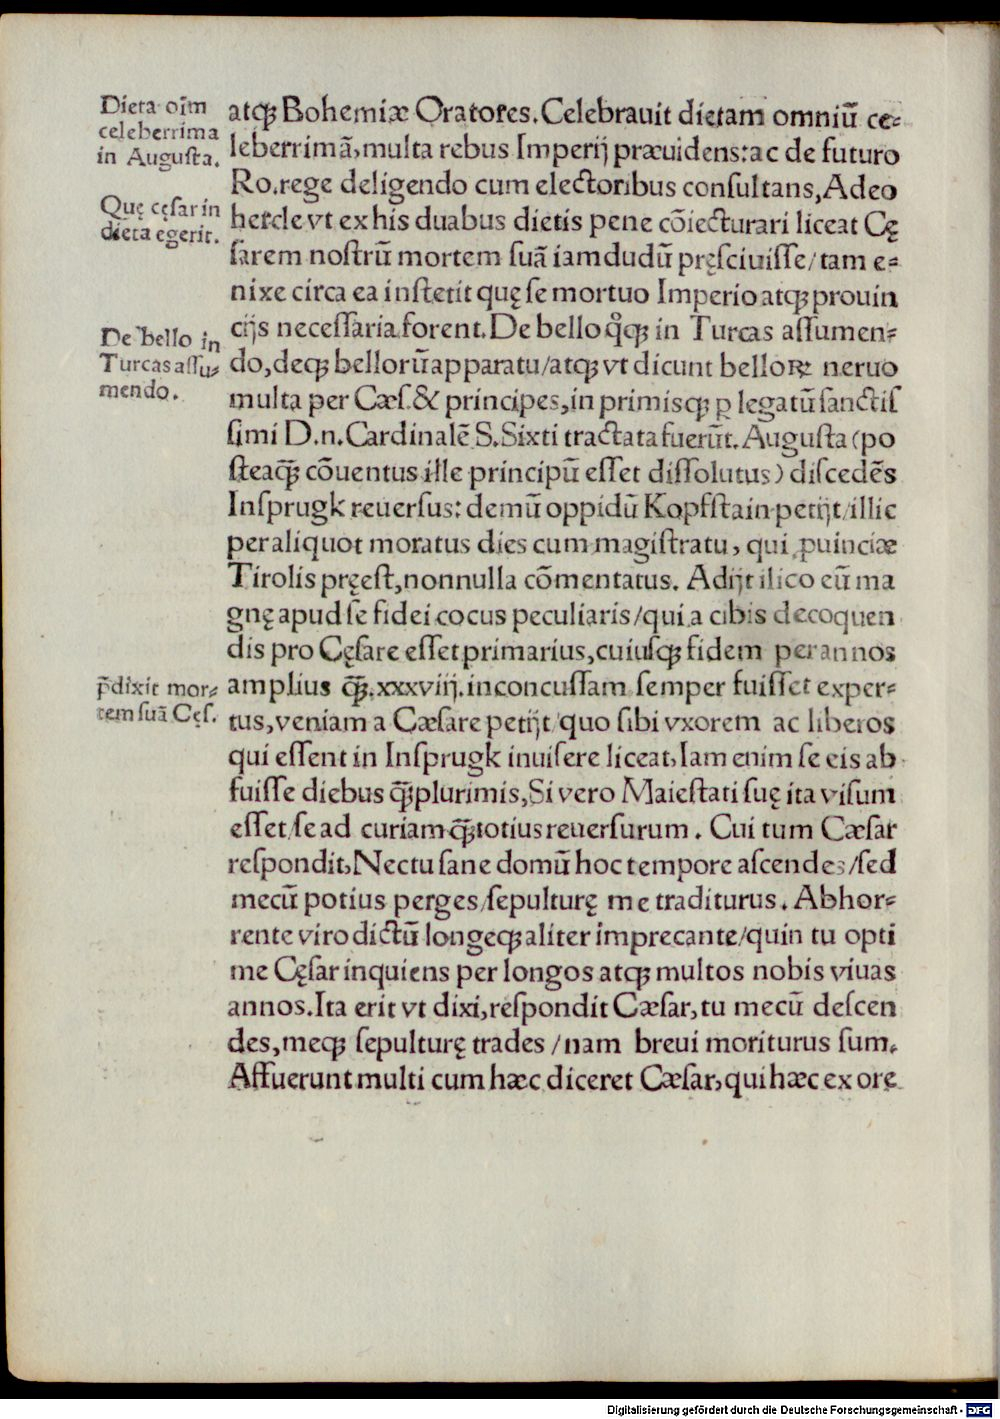 Dieta oīm
celeberrima
in Augusta.
Quę cęſar in
dieta egerit.
De bello in
Turcas aſſu⸗
mendo.
p̄dixit mor⸗
tem ſuā Cęſ.
atqꝫ Bohemiæ Oratores. Celebrauit dietam omniū ce⸗
leberrimā, multa rebus Imperij præuidens: ac de futuro
Ro. rege deligendo cum electoribus conſultans, Adeo
hercle vt ex his duabus dietis pene cōiecturari liceat Cę
ſarem noſtrū mortem ſuā iamdudū pręſciuiſſe/ tam e⸗
nixe circa ea inſtetit quę ſe mortuo Imperio atqꝫ prouin
cijs neceſſaria forent. De bello qͦqꝫ in Turcas aſſumen⸗
do, deqꝫ bellorū apparatu/ atqꝫ vt dicunt belloꝝ neruo
multa per Cæſ. & principes, in primisqꝫ ꝑ legatū ſanctiſ
ſimi D. n. Cardinalē S. Sixti tractata fuerūt. Auguſta (po
ſteaqꝫ̄ cōuentus ille principū eſſet diſſolutus) diſcedēs
Inſprugk reuerſus: demū oppidū Kopfſtain petijt/ illic
per aliquot moratus dies cum magiſtratu, qui ꝓuinciæ
Tirolis pręeſt, nonnulla cōmentatus. Adijt ilico eū ma
gnę apud ſe fidei cocus peculiaris/ qui a cibis decoquen
dis pro Cęſare eſſet primarius, cuiuſqꝫ fidem per annos
amplius qꝫ̄. xxxviij. inconcuſſam ſemper fuiſſet exper⸗
tus, veniam a Cæſare petijt/ quo ſibi vxorem ac liberos
qui eſſent in Inſprugk inuiſere liceat, Iam enim ſe eis ab
fuiſſe diebus qꝫ̄plurimis, Si vero Maieſtati ſuę ita viſum
eſſet/ ſe ad curiam qꝫ̄totius reuerſurum. Cui tum Cæſar
reſpondit, Nec tu ſane domū hoc tempore aſcendes/ ſed
mecū potius perges/ ſepulturę me traditurus. Abhor⸗
rente viro dictū longeqꝫ aliter imprecante/ quin tu opti
me Cęſar inquiens per longos atqꝫ multos nobis viuas
annos. Ita erit vt dixi, reſpondit Cæſar, tu mecū deſcen
des, meqꝫ ſepulturę trades / nam breui moriturus ſum.
Affuerunt multi cum hæc diceret Cæſar, qui hæc ex ore
Digitalisierung gefördert durch die Deutsche Forschungsgemeinschaft - DFG